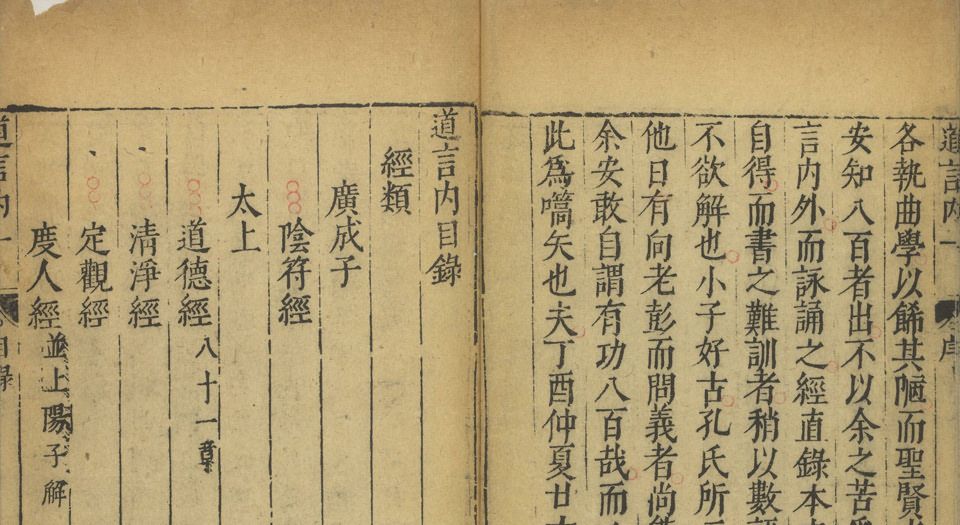 道言内一 序
各執曲學以餙其陋而聖賢
安知八百者出不以余之苦
言内外而詠誦之經直錄本
自得而書之難訓者稍以數
不欲解也小子好古孔氏所
他日有向老彭而問義者尚
余安敢自謂有功八百哉而
此爲嚆矢也夫丁酉仲夏廿
道言内目錄
經類
廣成子
陰符經
太上
道德經八十一章
清淨經
定觀經
度人經並上陽子解
道言内一 目錄